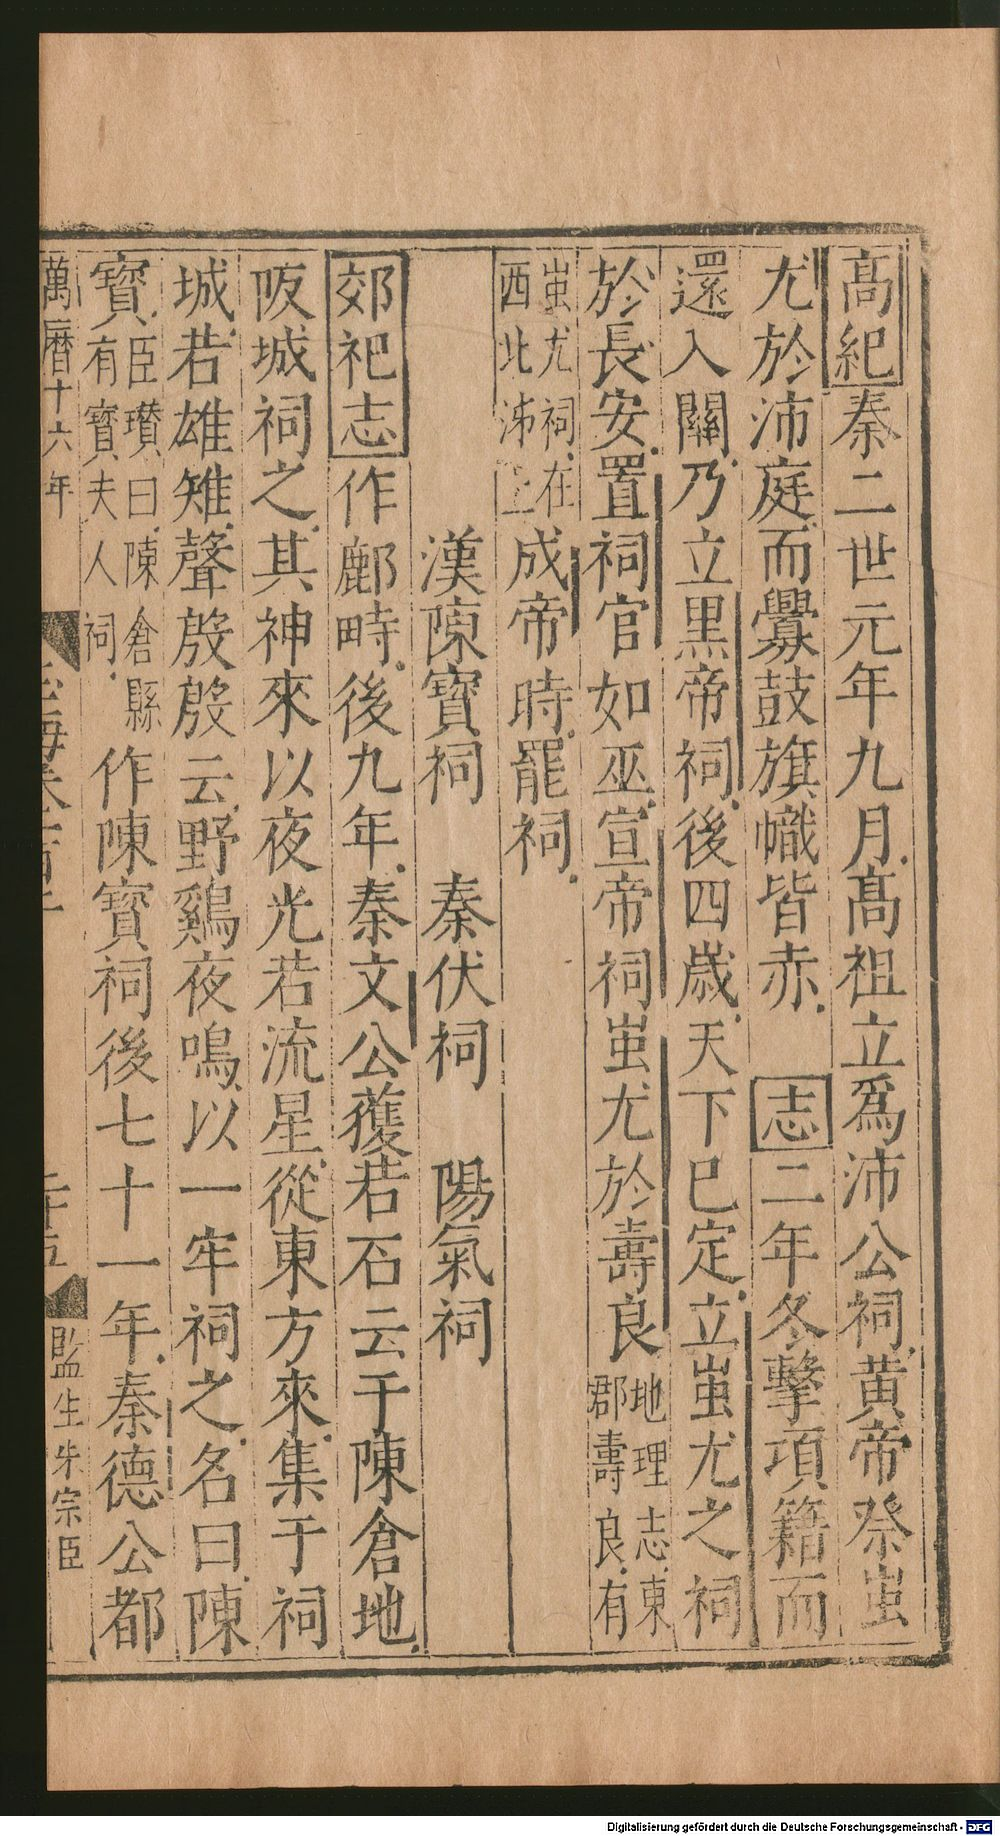 高紀秦二世元年九月髙祖立爲沛公祠黄帝祭蚩
尤於沛庭而釁鼓旗幟皆赤 志二年冬擊項籍而
還入關乃立黒帝祠後四歲天下已定立蚩尤之祠
於長安置祠官如巫宣帝祠蚩尤於壽良地理志東郡壽良有
蚩尤祠在西北泲上成帝時罷祠
漢陳寶祠 秦伏祠 陽氣祠
郊祀志作鄜畤後九年秦文公獲若石云于陳倉地
阪城祠之其神來以夜光若流星從東方來集于祠
城若雄雉聲殷殷云野鷄夜鳴以一牢祠之名曰陳
寶臣瓚曰陳倉縣有寶夫人祠作陳寶祠後七十一年秦德公都
萬曆十六年
二十五
監生朱宗臣
Digitalisierung gefördert durch die Deutsche Forschungsgemeinschaft - DFG